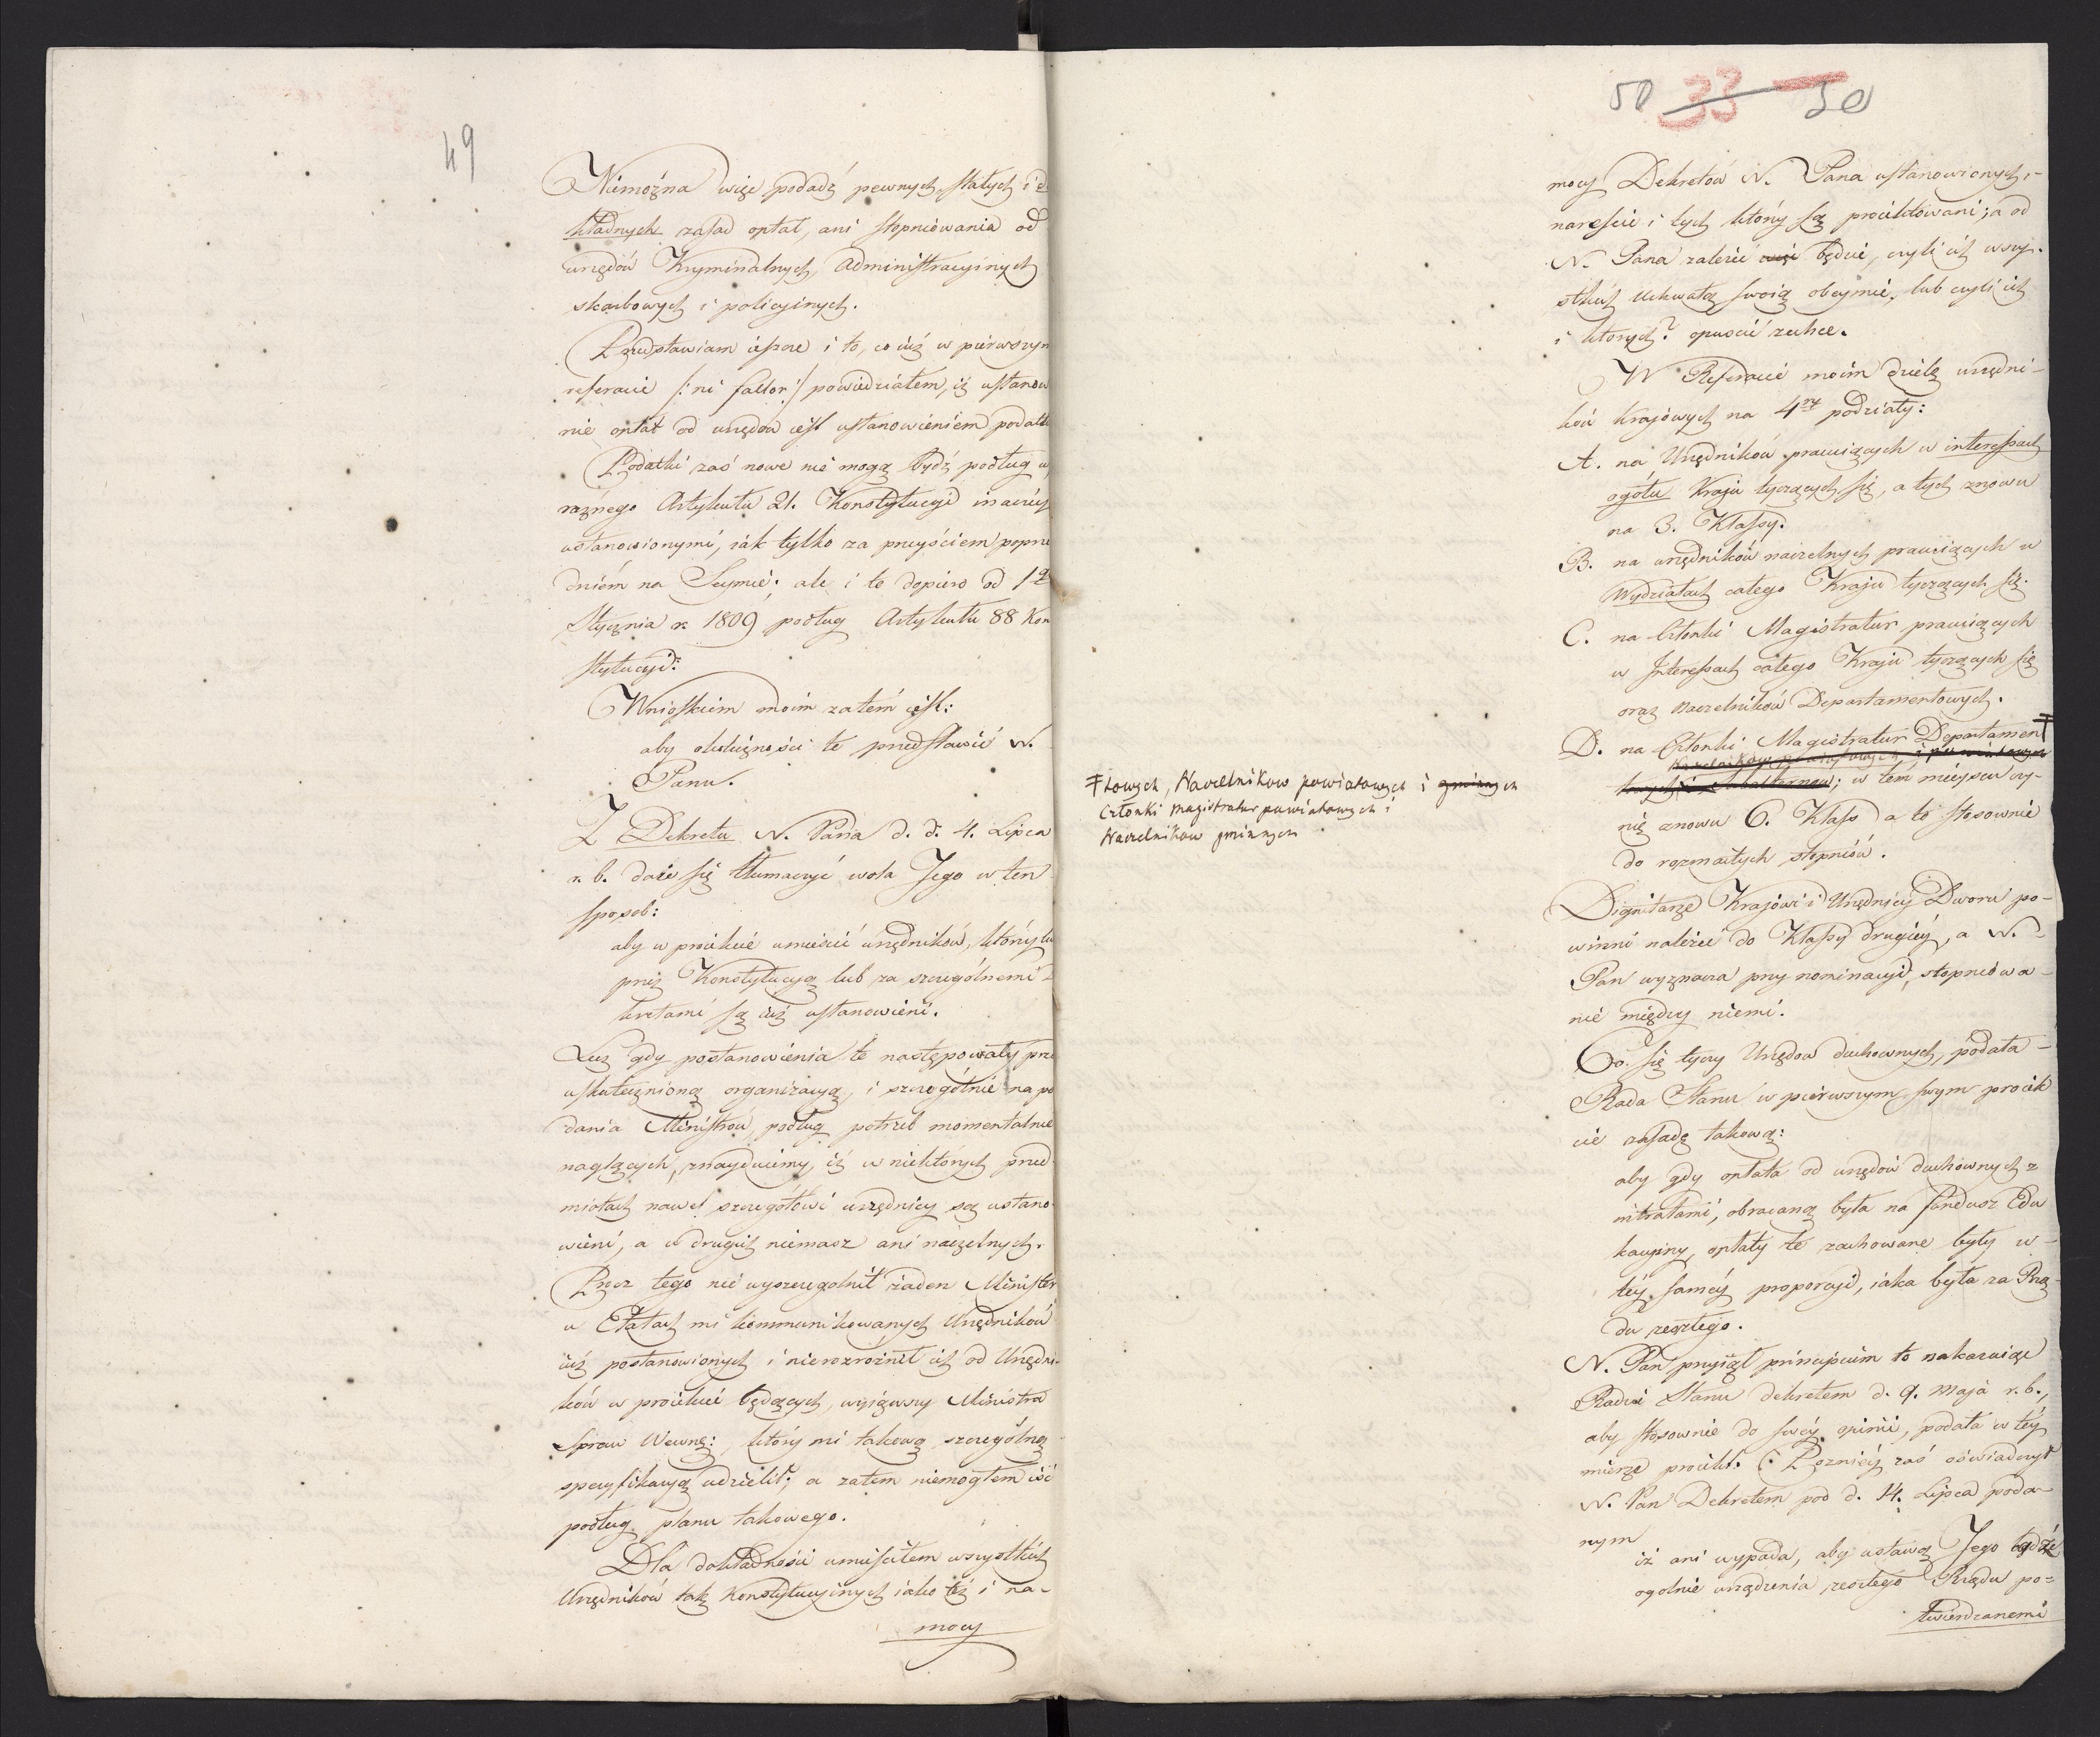 49
Niemożna więc podadź pewnych stałych i z
kładnych zasad opłat, ani stopniowania od
urzędów Kryminalnych, administracyinych
skarbowych i policyinych.
Przedstawiam ieszcze i to, co iuż w pierwszym
referacie /: ni fallor :/ powiedziałem, iż ustanow
nie opłat od urzędów iest ustanowieniem podatk
Podatki zaś nowe nie mogą bydź podług w
raźnego Artykułu 21. Konstytucyi inaczéy
ustanowionymi, iak tylko za przyściem poprze
dniém na Seymie; ale i to dopiero od 1go
Stycznia r. 1809 podług Artykułu 88 Kon
stytucyi.
Wnioskiem moim zatém iest:
aby okoliczności te przedstawić N.
Panu.
Z Dekretu N. Pana d. d. 4. Lipca
r. b. daie się tłumaczyć wola Jego w ten
sposob:
aby w proiekcie umieścić urzędników, którzy lu
przez Konstytucyą lub za szczególnemi
kretami są iuż ustanowieni.
Lecz gdy postanowienia te następowały prze
uskutecznioną organizacyą, i szczególnie na po
dania Ministrów, podług potrzeb momentalnie
naglących, znayduiemy, iż w niektorych przed
miotach nawet szczegółowi urzędnicy są ustano
wieni, a w drugich niemasz ani naczelnych.
Prócz tego nie wyszczegolnił żaden Minister
w Etatach mi kommunikowanych Urzędników
iuż postanowionych i nierozrożnił ich od Urzędni-
ków w proiekcie będących, wyiąwszy Ministra
Spraw Wewnę:, który mi takową szczególną
specyfikacyą udzielił; a zatem niemogłem iść
podług planu takowego.
Dla dokładności umieściłem wszystkich
Urzędników tak Konstytucyinych iako też i na-
mocy
50 33 50
mocy Dekretów N. Pana ustanowionych,-
nareście i tych którzy są proiektowani; a od
N. Pana zależeć będzie, czyli ich wszy-
stkich uchwałą swoią obeymie, lub czyli ich
i ktorych? opuścić zechce.
W Referacie moim dzielę urzędni-
ków kraiowych na 4ry podziały:
A. na Urzędników pracuiących w interessach
ogółu Kraiu tyczących się, a tych znowu
na 3. Klassy.
B. na urzędników naczelnych pracuiących w
Wydziałach całego Kraiu tyczących się.
C. na Członki Magistratur pracuiących
w Interessach całego Kraiu tyczących się
oraz Naczelników Departamentowych.
D. na Członki Magistratur Departamen
towych, Naczelnikow powiatowych i gminnych
Członki Magistratur powiatowych i
Naczelnikow gminnych
; w tém mieyscu czy-
nię znowu 6. Klass a to stosownie
do rozmaitych stopniów.
Dignitarze Kraiowi i Urzędnicy Dworu po-
winni należeć do Klassy drugiéy, a N.
Pan wyznacza przy nominacyi, stopniowa-
nie między niemi.
Co się tyczy Urzędow duchownych, podała
Rada Stanu w pierwszym swym proiek
cie zasadę takową:
aby gdy opłata od urzędów duchownych z
intratami, obracaną była na fundusz Edu
kacyiny, opłaty te zachowane były w
téy saméy proporcyi, iaka była za Rzą-
du zeszłego.
N. Pan przyiął principium to nakazuiąc
Radzie Stanu dekretem d. 9. Maja r. b.,
aby stosownie do swéy opinii, podała w téy
mierze proiekt. Pozniéy zaś oświadczył
N. Pan Dekretem pod d. 14. Lipca poda-
nym
iż ani wypada, aby ustawą Jego bydź
ogolnie urządzenia zeszłego Rządu po=
twierdzanemi